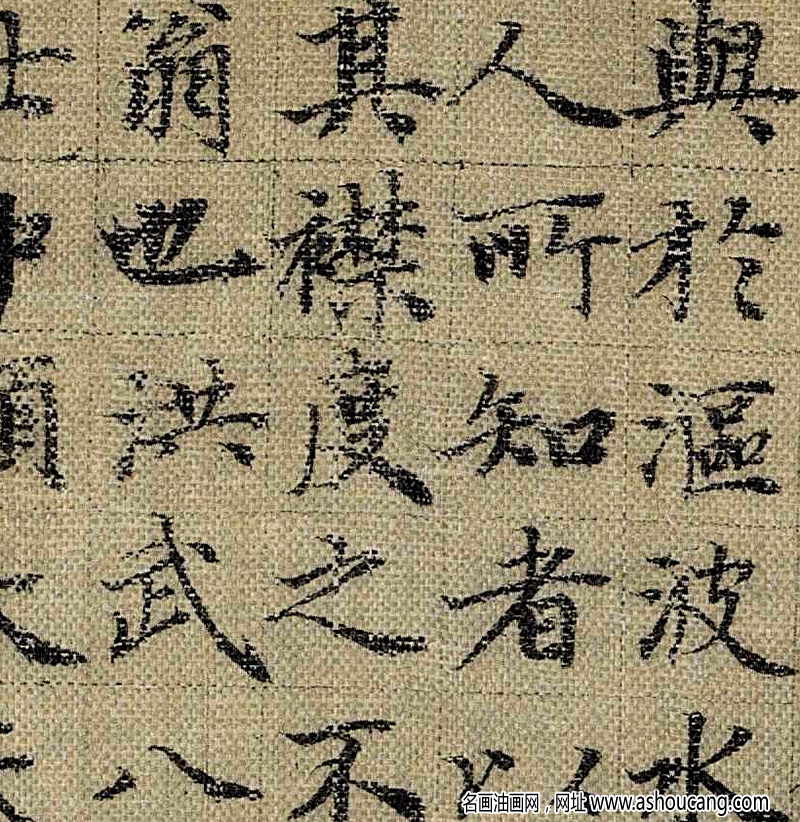 與於漚波水
人所知者以
其襟度之不
翁也洪武八
名画油画网，网址 www.ashoucang.com